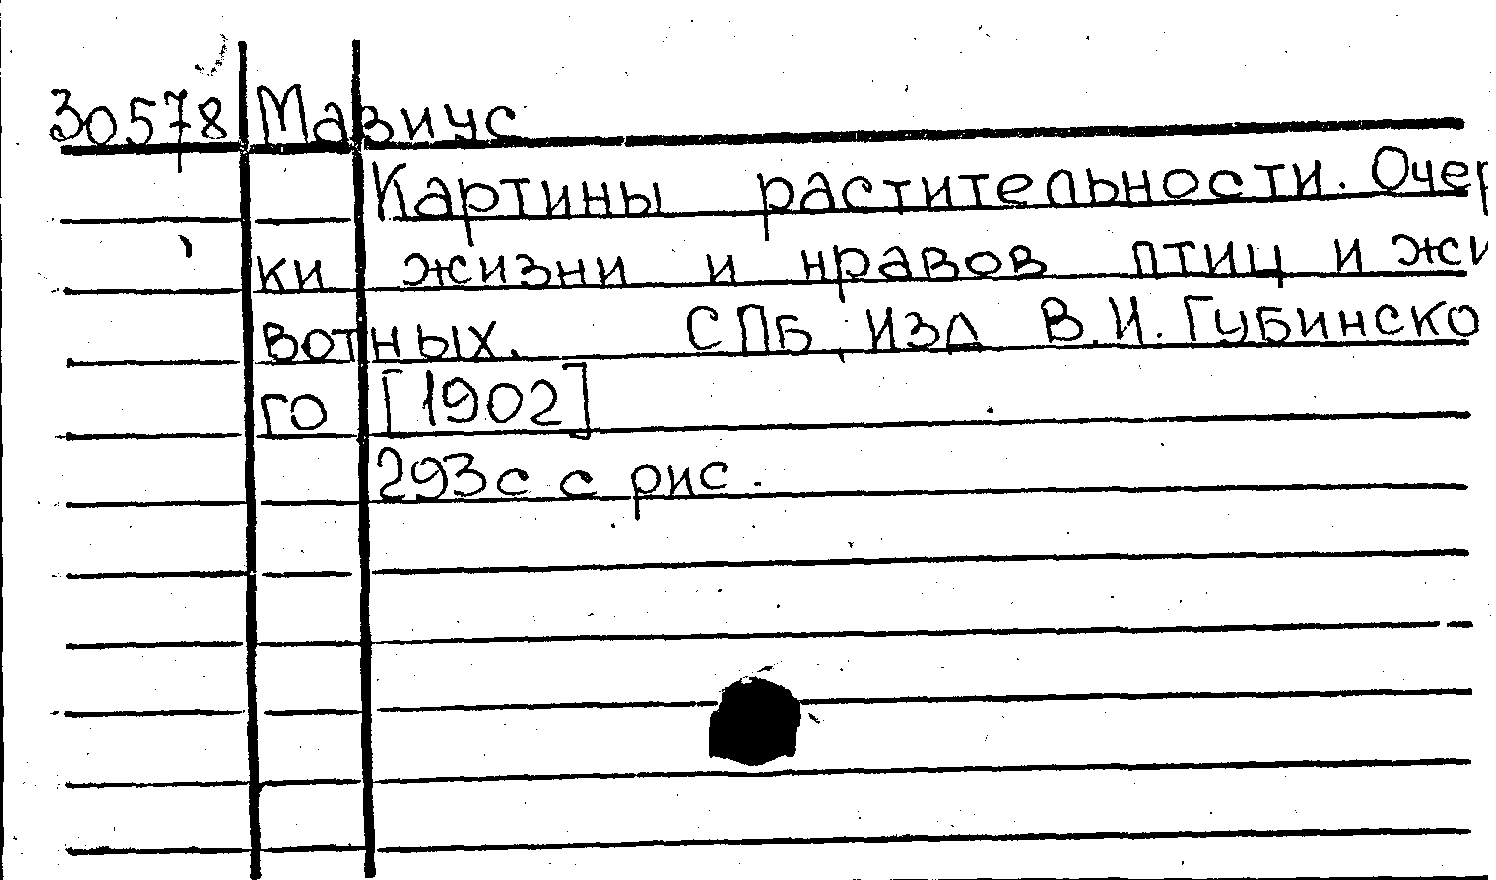 30578 Мазиус
Картины растительности. Очер
ки жизни и нравов птиц и жи
вотных. СПБ, Изд В.И. Губинско
го [1902]
293с с рис.